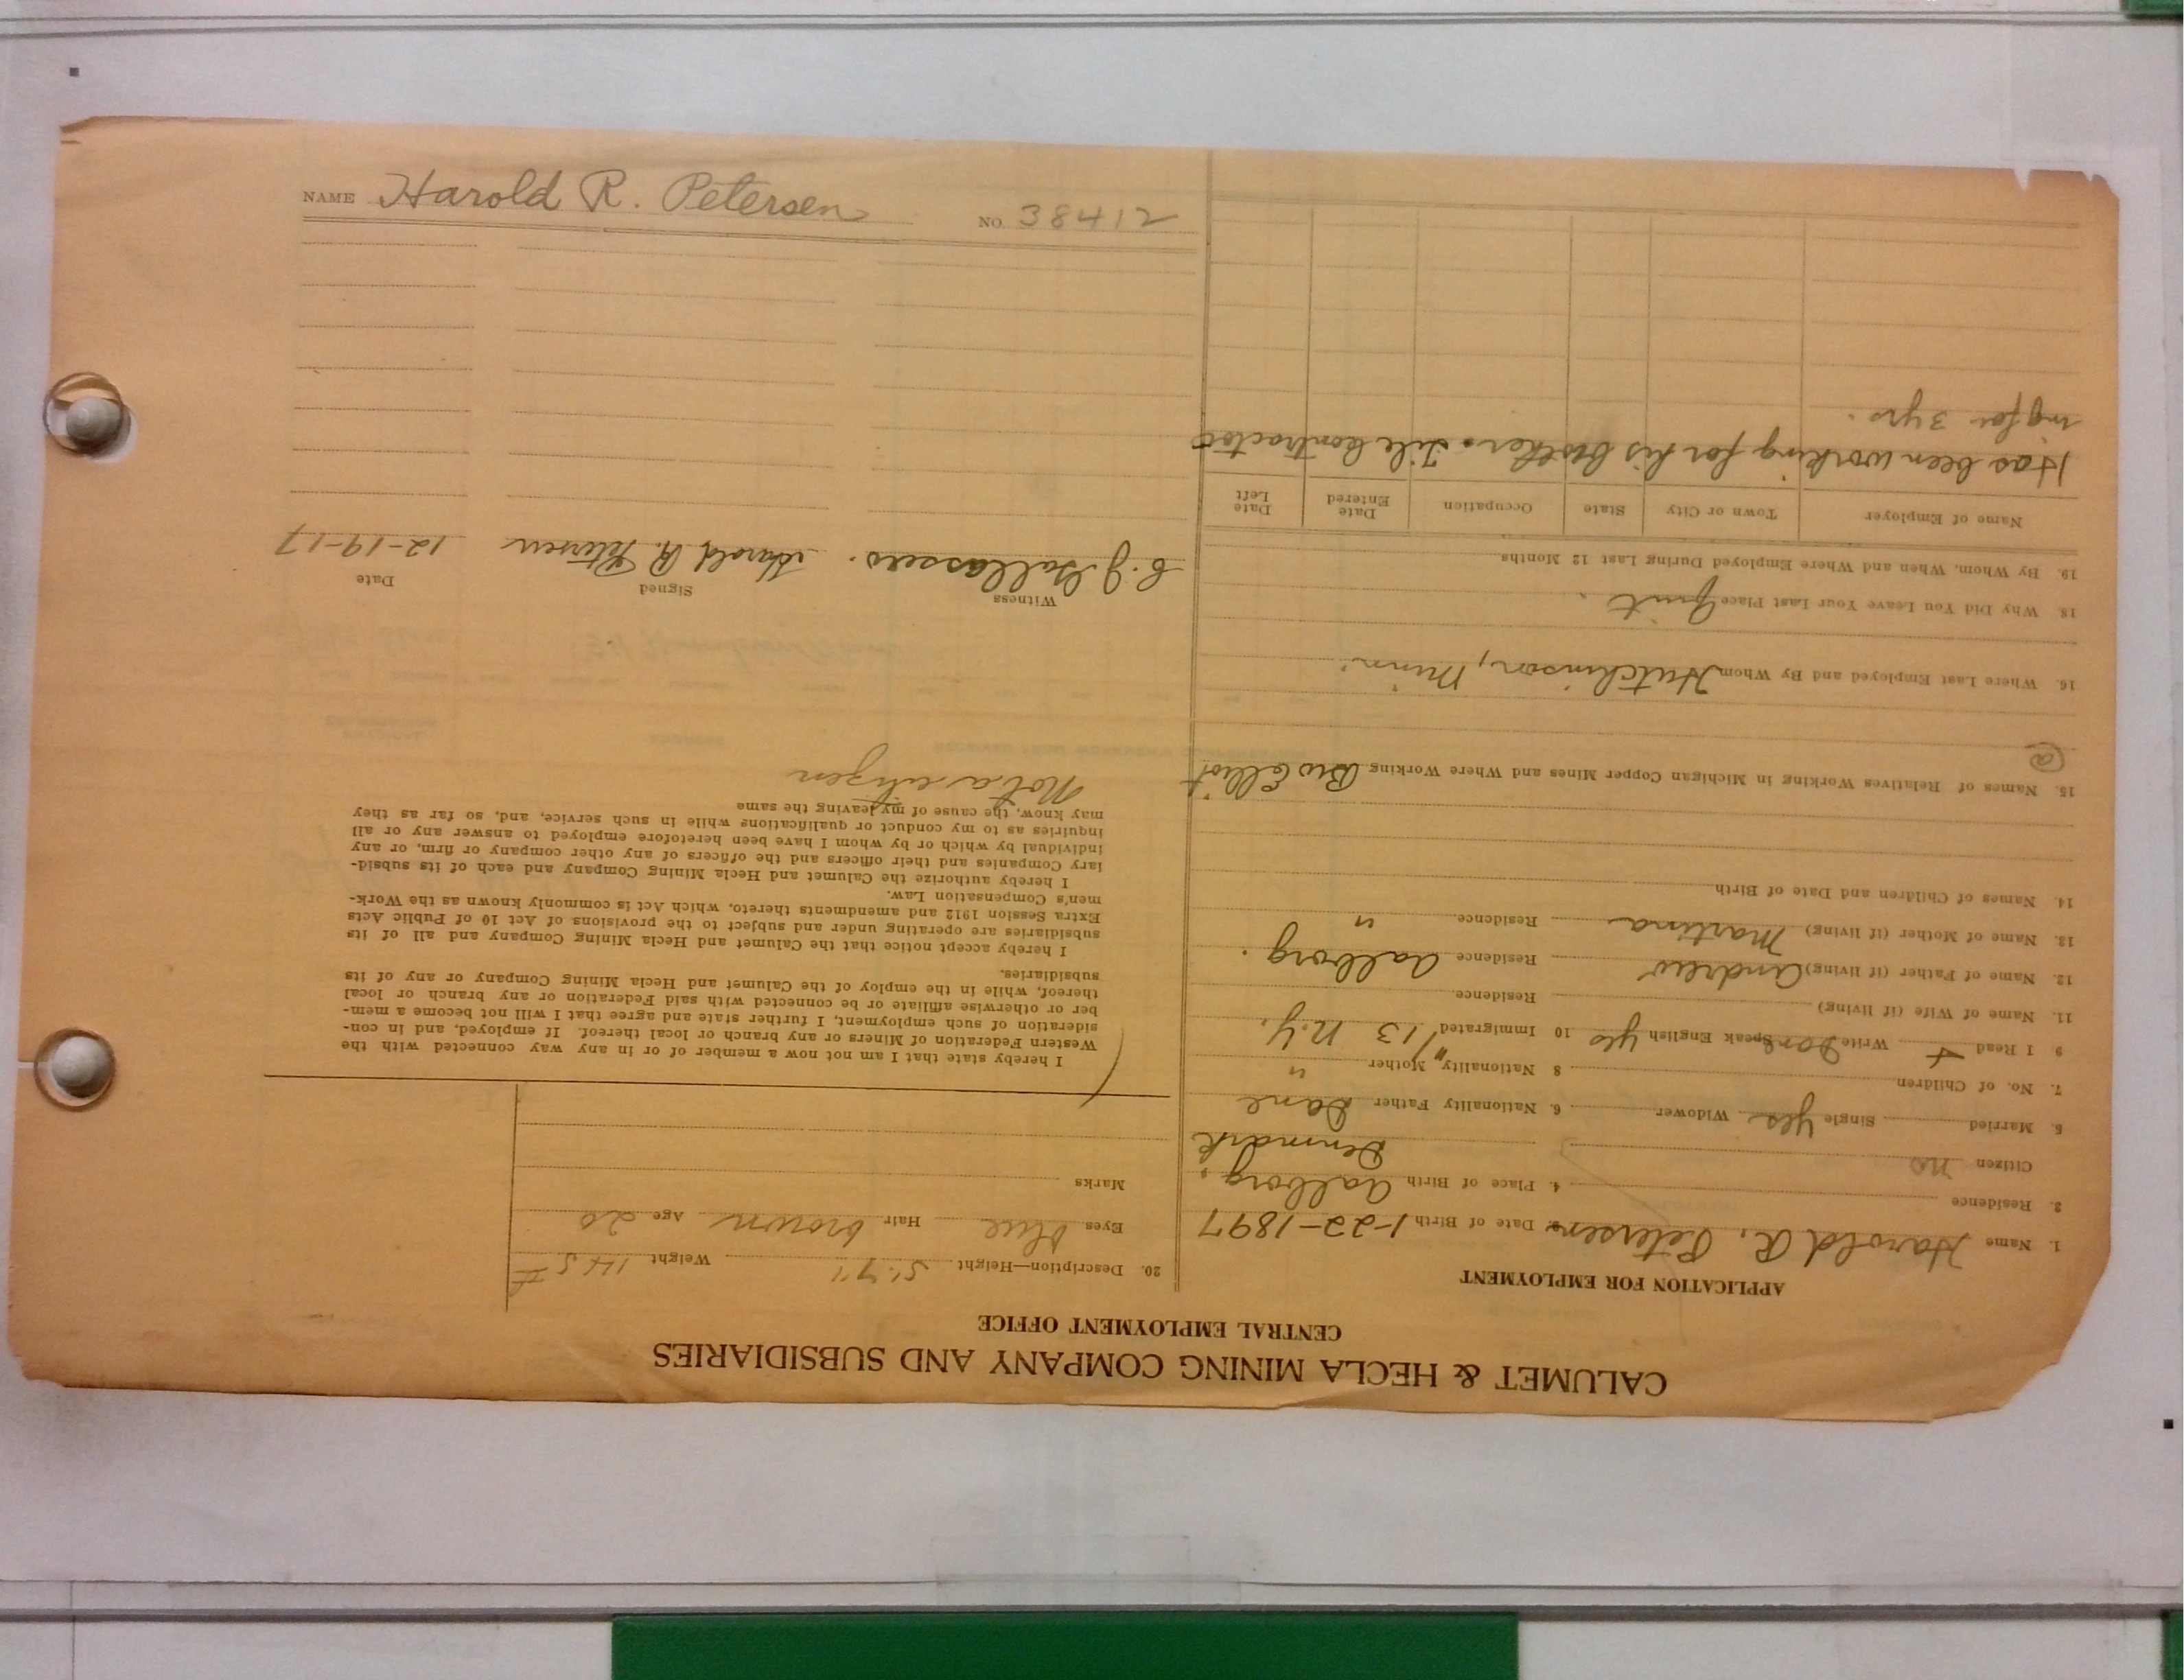 NAME Harold R. Petersen NO. 38412
CALUMET & HECLA MINING COMPANY AND SUBSIDIARIES
CENTRAL EMPLOYMENT OFFICE
APPLICATION FOR EMPLOYMENT
1. Name Harold R. Petersen 2. Date of Birth 1-22-1897
3. Residence 4. Place of Birth Aalborg,
Citizen no Denmark
5. Married Single yes Widower 6. Nationality Father Dane
7. No. of Children 8 Nationality Mother "
9 I Read + Write Dane Speak English yes 10 Immigrated '13 N.Y.
11. Name of Wife (if living) Residence
12. Name of Father (if living) Andrew Residence Aalborg.
13. Name of Mother (if living) Martina Residence "
14. Names of Children and Date of Birth
15. Names of Relatives Working in Michigan Copper Mines and Where Working Bro Elliot
@
16. Where Last Employed and By Whom Hutchinson, Minn.
18. Why Did You Leave Your Last Place Quit.
19. By Whom, When and Where Employed During Last 12 Months
Name of Employer Town or City State Occupation Date Entered Date Left
Has been working for his brother. Tile Contractor
ing for 3 yrs.
20. Description—Height 5'.7" Weight 145 #
Eyes blue Hair brown Age 20
Marks
I hereby state that I am not now a member of or in any way connected with the
Western Federation of Miners or any branch or local thereof. If employed, and in con-
sideration of such employment, I further state and agree that I will not become a mem-
ber or otherwise affiliate or be connected with said Federation or any branch or local
thereof, while in the employ of the Calumet and Hecla Mining Company or any of its
subsidiaries.
I hereby accept notice that the Calumet and Hecla Mining Company and all of its
subsidiaries are operating under and subject to the provisions of Act 10 of Public Acts
Extra Session 1912 and amendments thereto, which Act is commonly known as the Work-
men's Compensation Law.
I hereby authorize the Calumet and Hecla Mining Company and each of its subsid-
iary Companies and their officers and the officers of any other company or firm, or any
individual by which or by whom I have been heretofore employed to answer any or all
inquiries as to my conduct or qualifications while in such service, and, so far as they
may know, the cause of my leaving the same
Not a citizen
Witness Signed Date
Harold R. Petersen 12-19-17